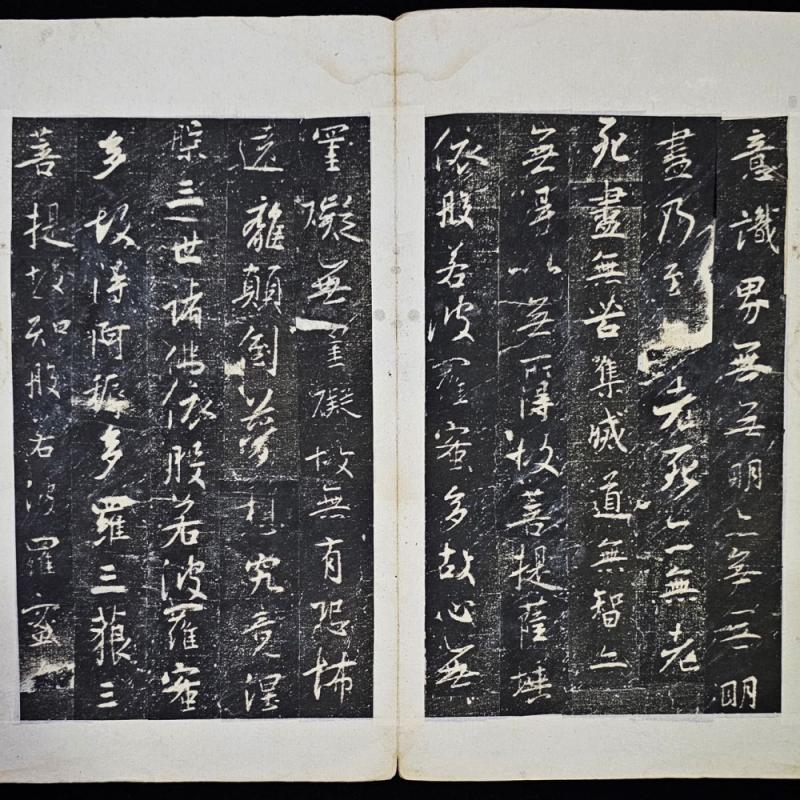 意識界無無明亦無無明
盡乃至老死亦無老
死盡無苦集滅道無智亦
無得以無所得故菩提薩埵
依般若波羅蜜多故心無
罣礙無罣礙故無有恐怖
遠離顛倒夢想究竟涅
槃三世諸佛依般若波羅蜜
多故得阿耨多羅三藐三
菩提故知般若波羅蜜